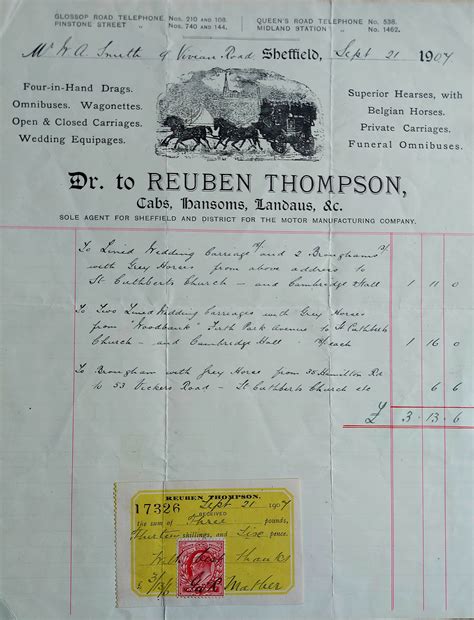 GLOSSOP ROAD TELEPHONE, Nos. 210 and 108.
PINSTONE STREET " Nos. 740 and 144.
QUEEN'S ROAD TELEPHONE No. 538.
MIDLAND STATION " No. 1462.
Mr W A Smith of Vivian Road, Sheffield, Sept 21 1907
Four-in-Hand Drags.
Omnibuses. Wagonettes.
Open & Closed Carriages.
Wedding Equipages.
Superior Hearses, with
Belgian Horses.
Private Carriages.
Funeral Omnibuses.
Dr. to REUBEN THOMPSON,
Cabs, Hansoms, Landaus, &c.
SOLE AGENT FOR SHEFFIELD AND DISTRICT FOR THE MOTOR MANUFACTURING COMPANY.
To Lined Wedding Carriage and 2 Broughams
with Grey Horses from above address to
St Cuthberts Church - and Cambridge Hall 1 11 0
To Two Lined Wedding Carriages with Grey Horses
from "Woodbank" Firth Park Avenue to St Cuthberts
Church - and Cambridge Hall - each 1 16 0
To Brougham with Grey Horses from 38 Hamilton Rd
to 53 Vickers Road - St Cuthberts Church etc 6 6
£ 3 13 6
REUBEN THOMPSON.
17326 Sept 21 1907
RECEIVED
the sum of Three pounds,
Thirteen shillings, and Six pence.
With best thanks
£ 3/13/6 Mather